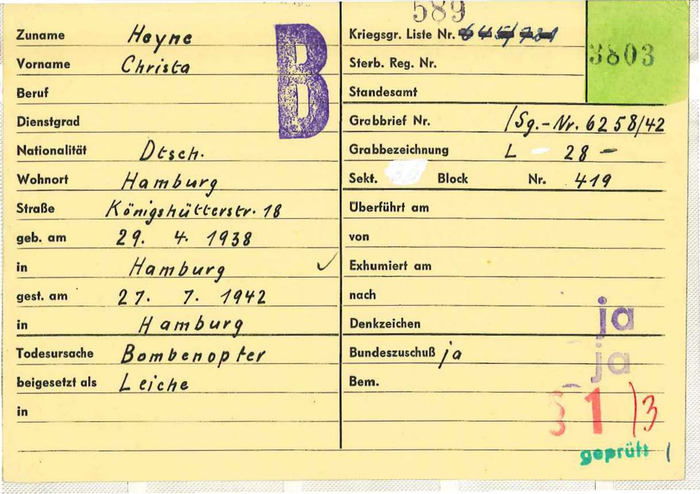 589
Zuname Heyne
Vorname Christa
Beruf
Dienstgrad
Nationalität Dtsch.
Wohnort Hamburg
Straße Königshütterstr. 18
geb. am 29. 4. 1938
in Hamburg
gest. am 27. 7. 1942
in Hamburg
Todesursache Bombenopfer
beigesetzt als Leiche
in
B
Kriegsgr. Liste Nr.
3803
Sterb. Reg. Nr.
Standesamt
Grabbrief Nr. /Sg.-Nr. 6258/42
Grabbezeichnung L - 28 -
Sekt. Block Nr. 419
Überführt am
von
Exhumiert am
nach
Denkzeichen ja
Bundeszuschuß ja ja
Bem.
1 /3
geprüft